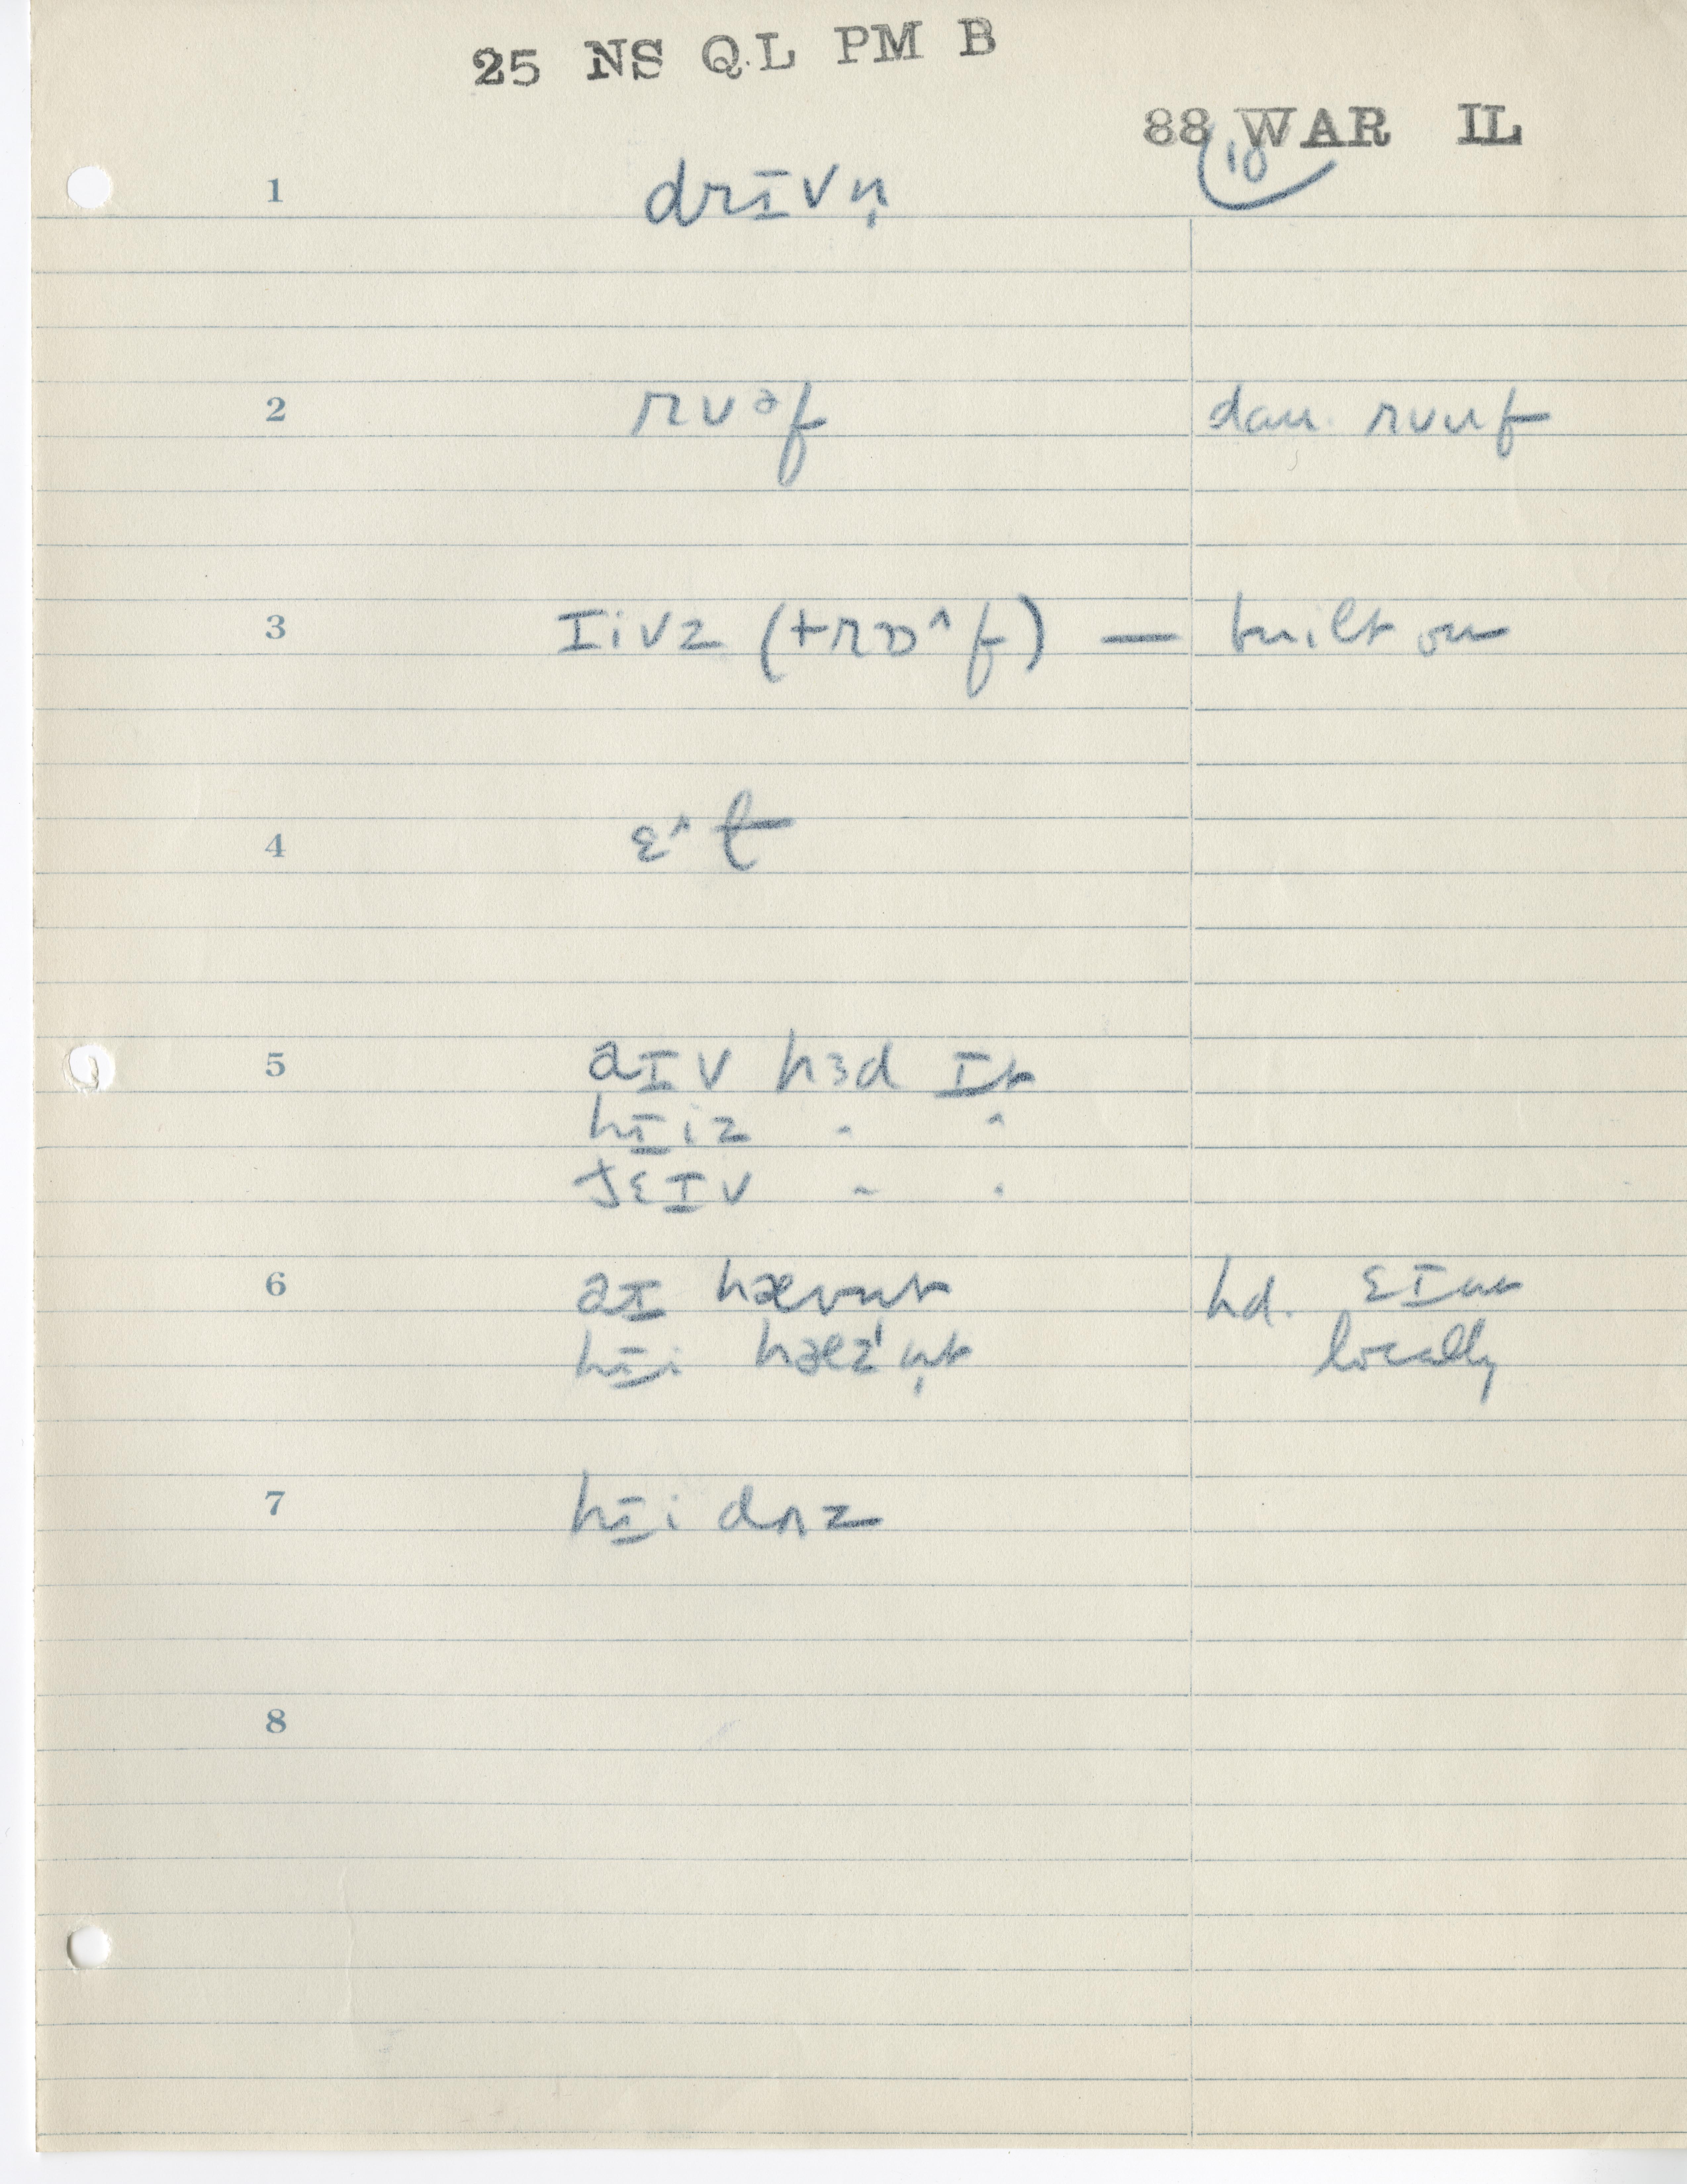 25 NS QL PM B
88 WAR IL
10
1 drɪvn̩
2 rʊᵊf dau. rʊuf
3 ɪivz (+rɒ^f) — built on
4 ɛ^t
5 aɪv hɜd ɪt
hɪiz " "
ðɛɪv " "
6 aɪ hævnt hd. ɛɪnt
hɪi hæzn̩t locally
7 hɪi dʌz
8